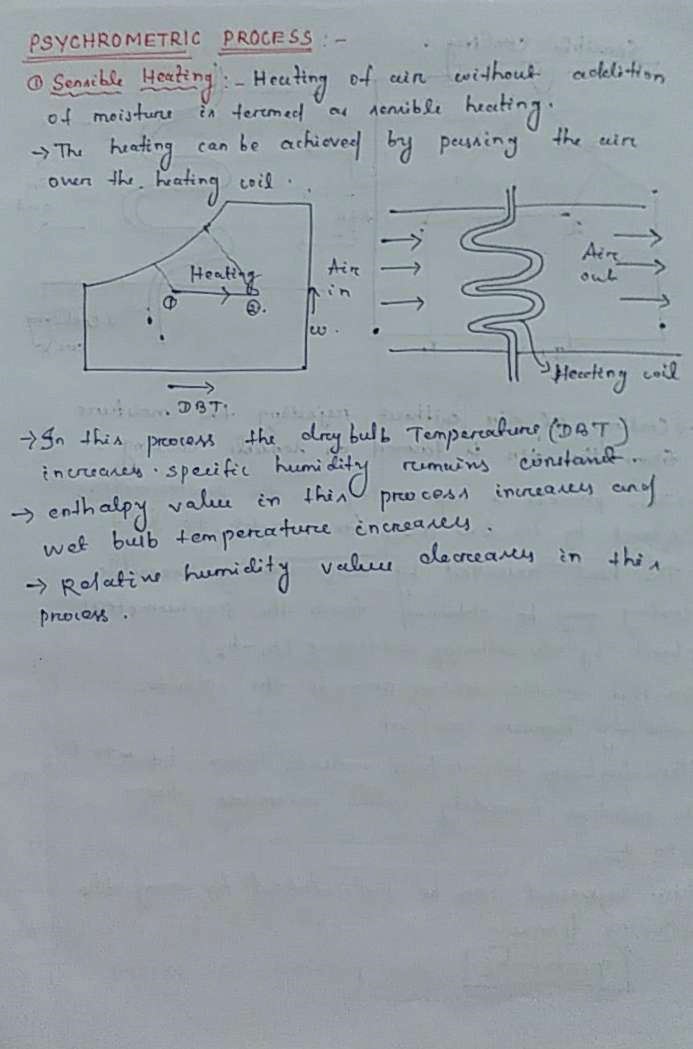 PSYCHROMETRIC PROCESS :-
① Sensible Heating :- Heating of air without addition
of moisture is teremed as sensible heating.
→ The heating can be achieved by passing the air
over the heating coil.
Heating
①
②
ω
DBT
Air
in
Air
out
Heating coil
→ In this process the dry bulb Temperature (DBT)
increases. specific humidity remains constant.
→ enthalpy value in this process increases and
wet bulb temperature increases.
→ Relative humidity value decreases in this
process.